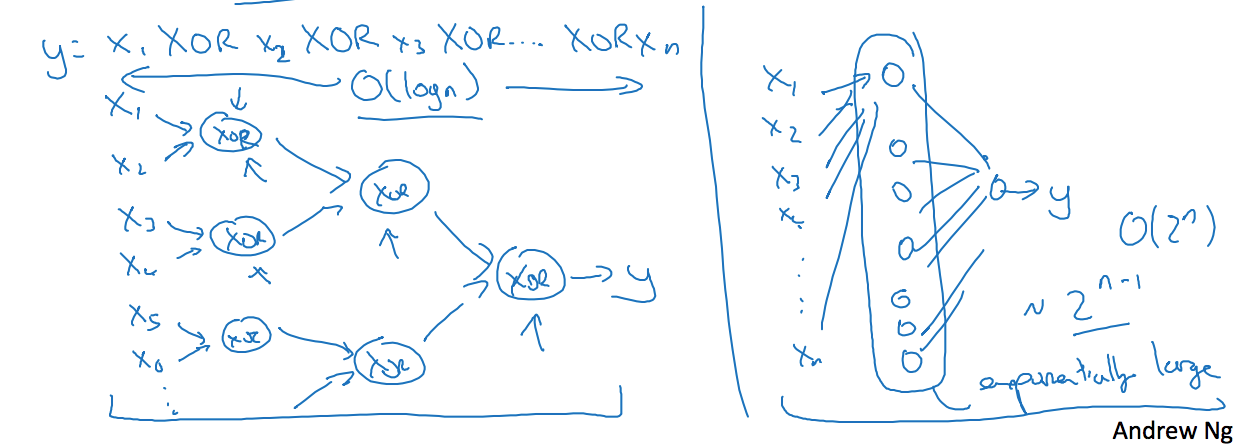 y = x₁ XOR x₂ XOR x₃ XOR .... XOR xₙ
O(log n)
x₁
XOR
x₂
XOR
x₃
XOR
x₄
XOR
y
x₅
XOR
x₆
XOR
⋮
x₁
x₂
x₃
x₄
y
O(2ⁿ)
⋮
~ 2ⁿ⁻¹
xₙ
exponentially large
Andrew Ng